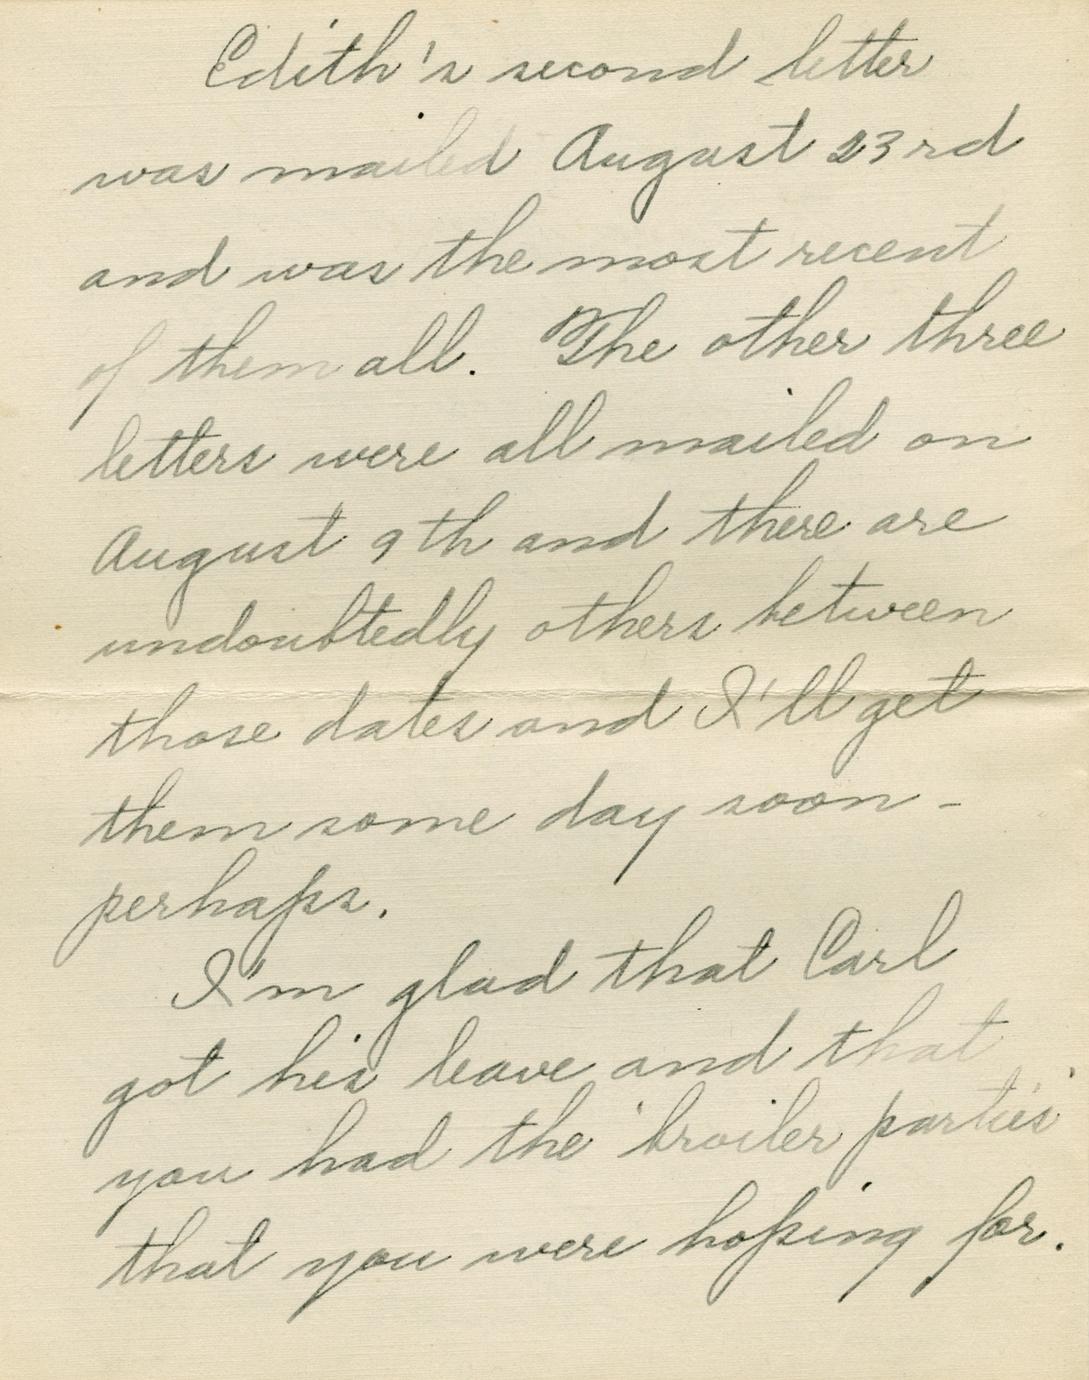 Edith's second letter
was mailed August 23rd
and was the most recent
of them all. The other three
letters were all mailed on
August 9th and there are
undoubtedly others between
those dates and I'll get
them some day soon -
perhaps.
I'm glad that Carl
got his leave and that
you had the 'broiler parties'
that you were hoping for.